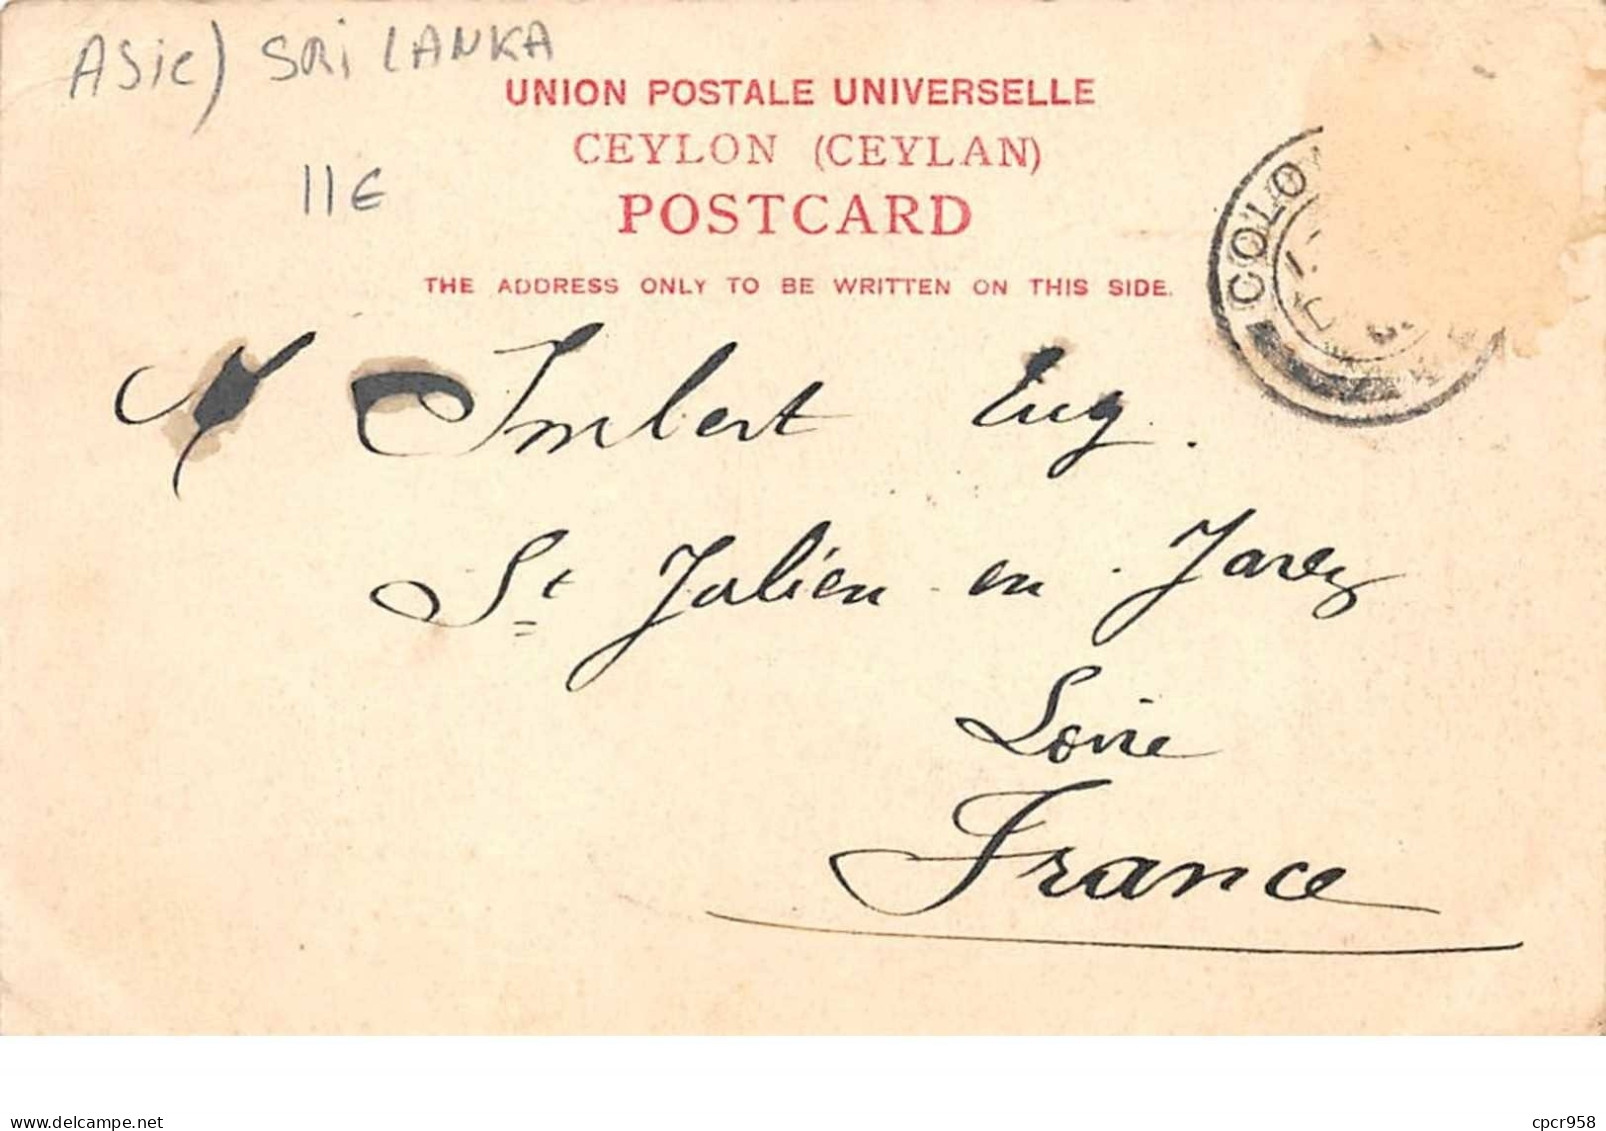 Asie) SRi LANKA
UNION POSTALE UNIVERSELLE
CEYLON (CEYLAN)
11€
POSTCARD
COLO
THE ADDRESS ONLY TO BE WRITTEN ON THIS SIDE.
M Imbert Eug.
St Julien en Jarez
Loire
France
delcampe.net
cpcr958